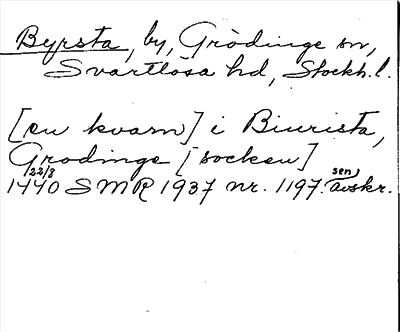 Byrsta, by, Grödinge sn,
Svartlösa hd, Stockh. l.
[en kvarn] i Biurista,
Grodinge [socken]
1440 22/8 SMR 1937 nr. 1197. sen avskr.